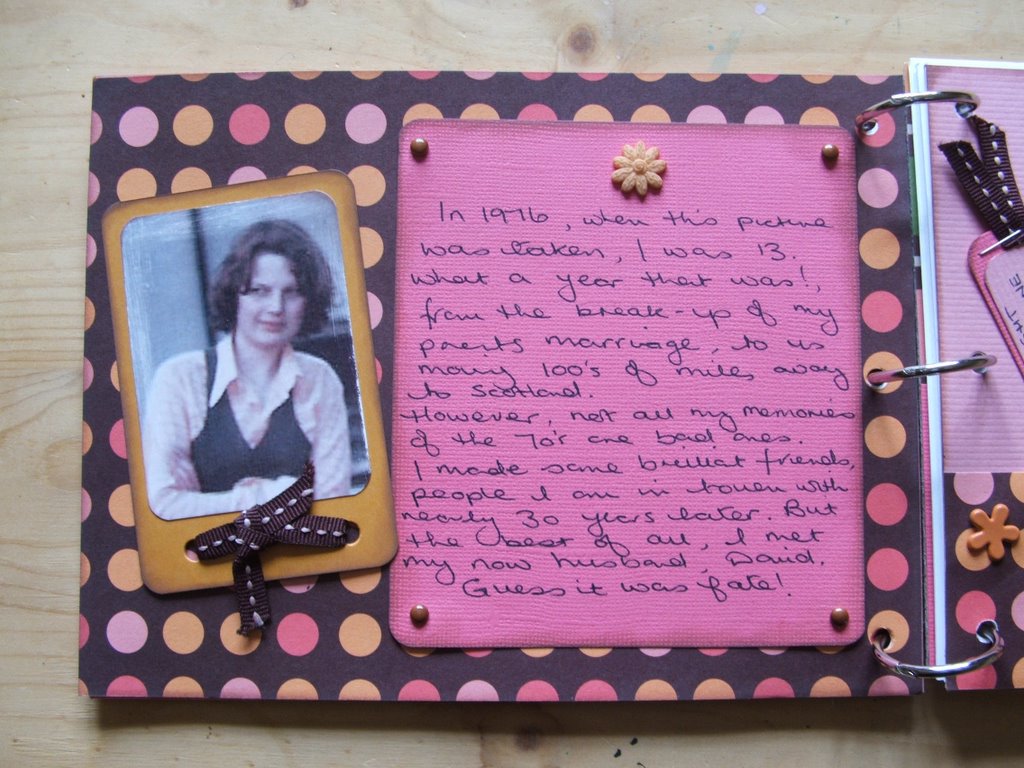 In 1976, when this picture
was taken, I was 13.
What a year that was!,
from the break-up of my
parents marriage, to us
moving 100's of miles away
to Scotland.
However, not all my memories
of the 70's are bad ones.
I made some brilliant friends,
people I am in touch with
nearly 30 years later. But
the best of all, I met
my now husband, David.
Guess it was fate!